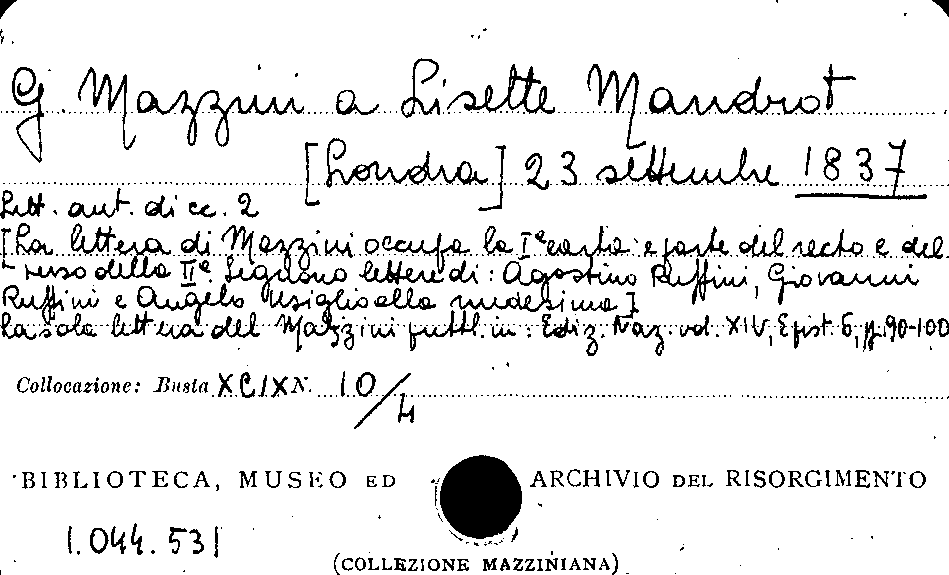 G. Mazzini a Lisette Mandrot
[Londra] 23 settembre 1837
Lett. aut. di cc. 2
[La lettera di Mazzini occupa la Iª carta e parte del recto e del
verso della IIª. Seguono lettere di: Agostino Ruffini, Giovanni
Ruffini e Angelo Usiglio alla medesima]
La sola lettera del Mazzini pubbl. in: Ediz. Naz. vol. XIV, Epist. 6, p. 90-100
Collocazione: Busta XCIX N. 10/4
BIBLIOTECA, MUSEO ED ARCHIVIO DEL RISORGIMENTO
1.044.531
(COLLEZIONE MAZZINIANA)